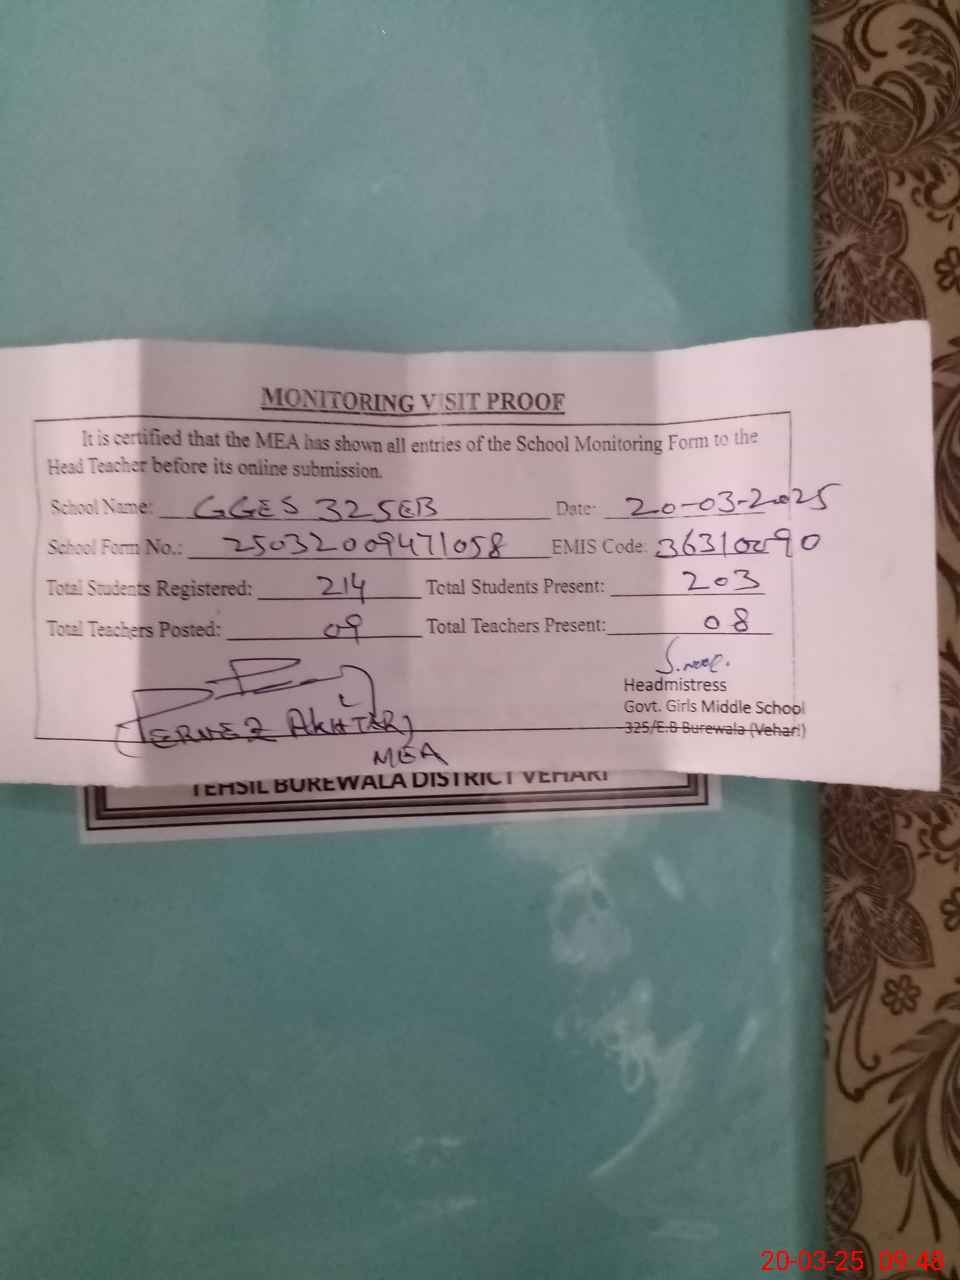 MONITORING VISIT PROOF
It is certified that the MEA has shown all entries of the School Monitoring Form to the
Head Teacher before its online submission.
School Name: GGES 325EB Date: 20-03-2025
School Form No.: 25032009471058 EMIS Code: 36310090
Total Students Registered: 214 Total Students Present: 203
Total Teachers Posted: 09 Total Teachers Present: 08
Headmistress
Govt. Girls Middle School
325/E.B Burewala (Vehari)
(PERVEZ AKHTAR)
MEA
TEHSIL BUREWALA DISTRICT VEHARI
20-03-25 09:48